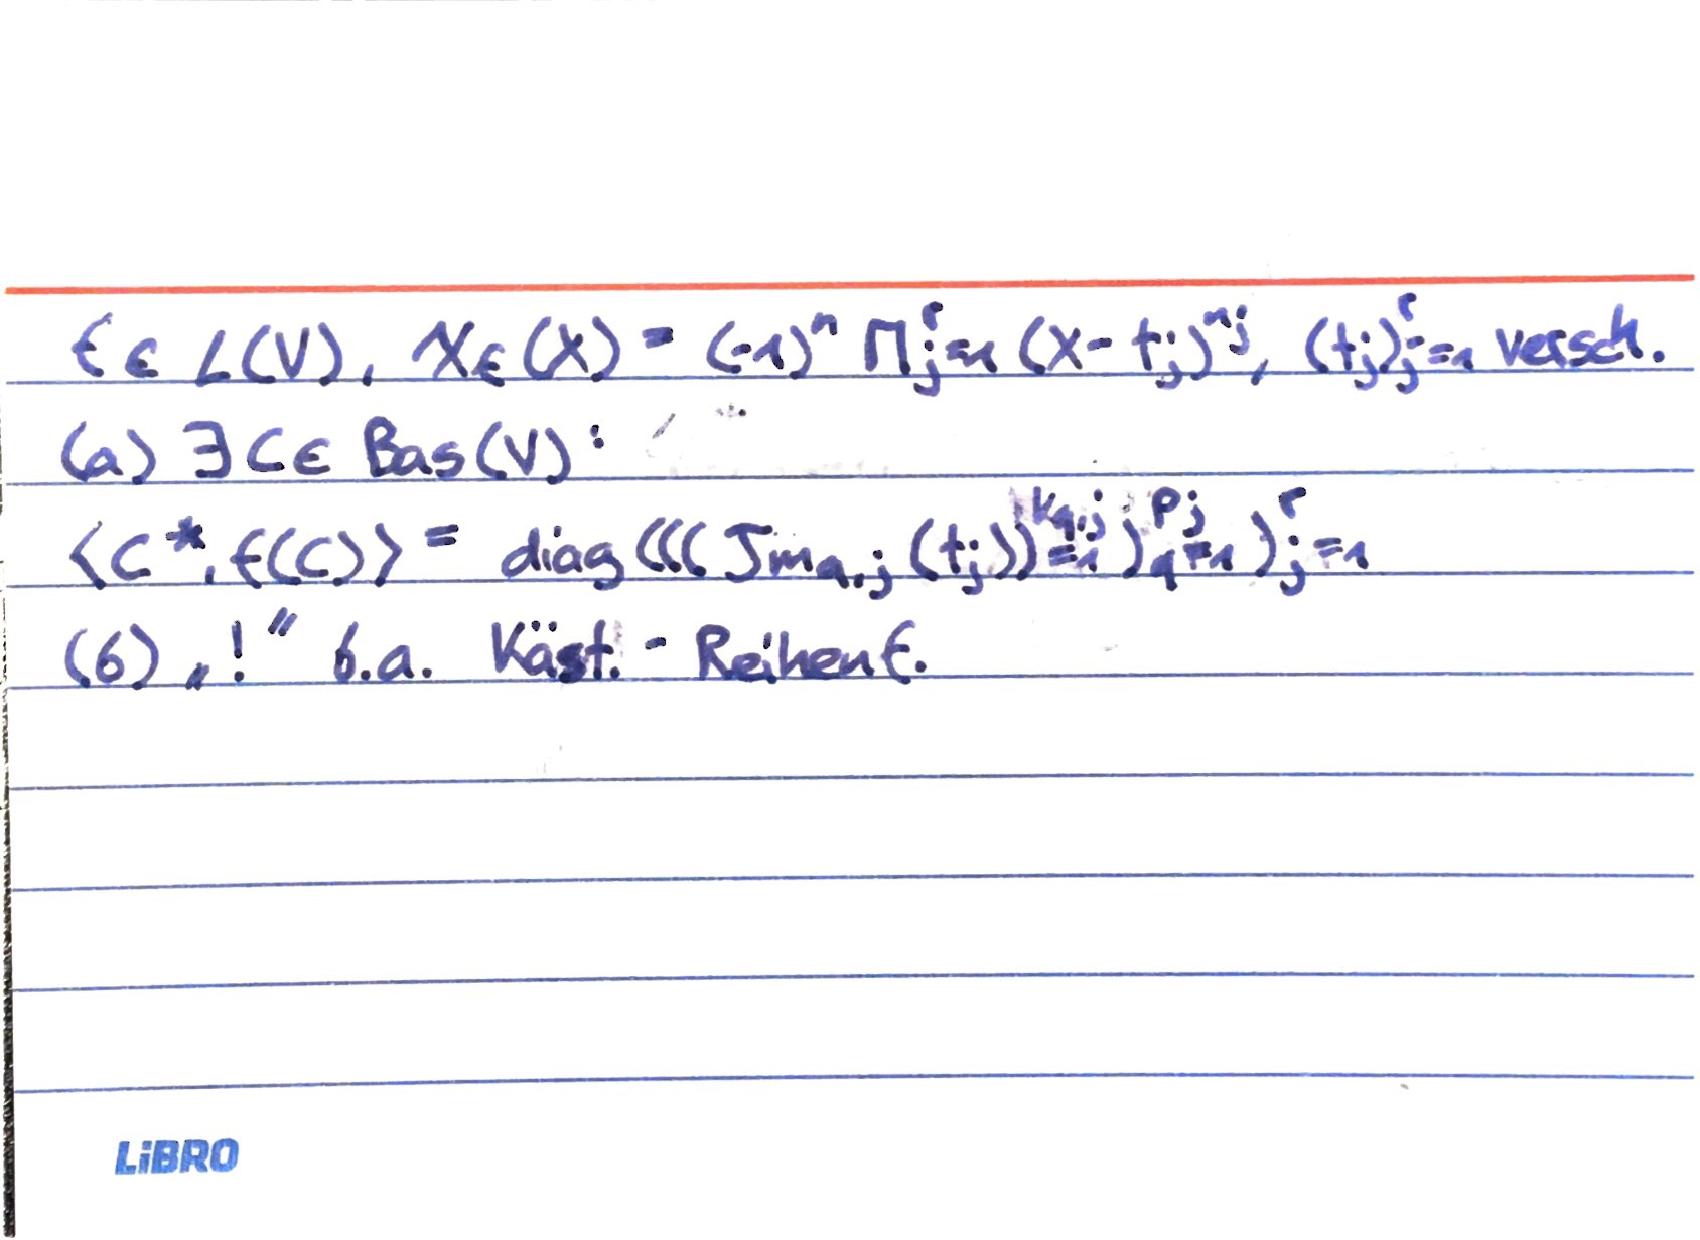 f ∈ L(V), χ_f(X) = (-1)^n ∏_{j=1}^r (X - t_j)^{n_j}, (t_j)_{j=1}^r versch.
(a) ∃ C ∈ Bas(V):
⟨C*, f(C)⟩ = diag(((J_{m_{q,j}}(t_j))_{=1}^{k_{q,j}})_{q=1}^{p_j})_{j=1}^r
(b) „!" b.a. Käst.-Reihenf.
LiBRO